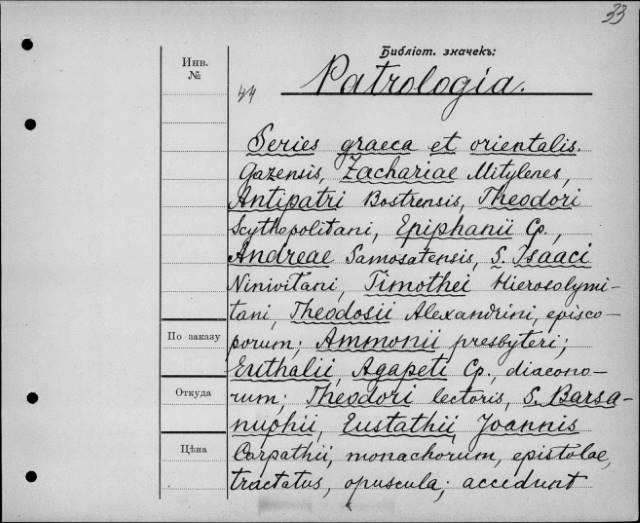 33
Библіот. значекъ:
Инв.
№
44
Patrologia.
Series graeca et orientalis.
Gazensis, Zachariae Mitylenes,
Antipatri Bostrensis, Theodori
Scythopolitani, Epiphanii Cp.,
Andreae Samosatensis, S. Isaaci
Ninivitani, Timothei Hierosolymi-
tani, Theodosii Alexandrini, episco-
По заказу
porum; Ammonii presbyteri;
Euthalii, Agapeti Cp., diacono-
Откуда
rum; Theodori lectoris, S. Barsa-
nuphii, Eustathii, Joannis
Цѣна
Carpathii, monachorum, epistolae,
tractatus, opuscula; accedunt